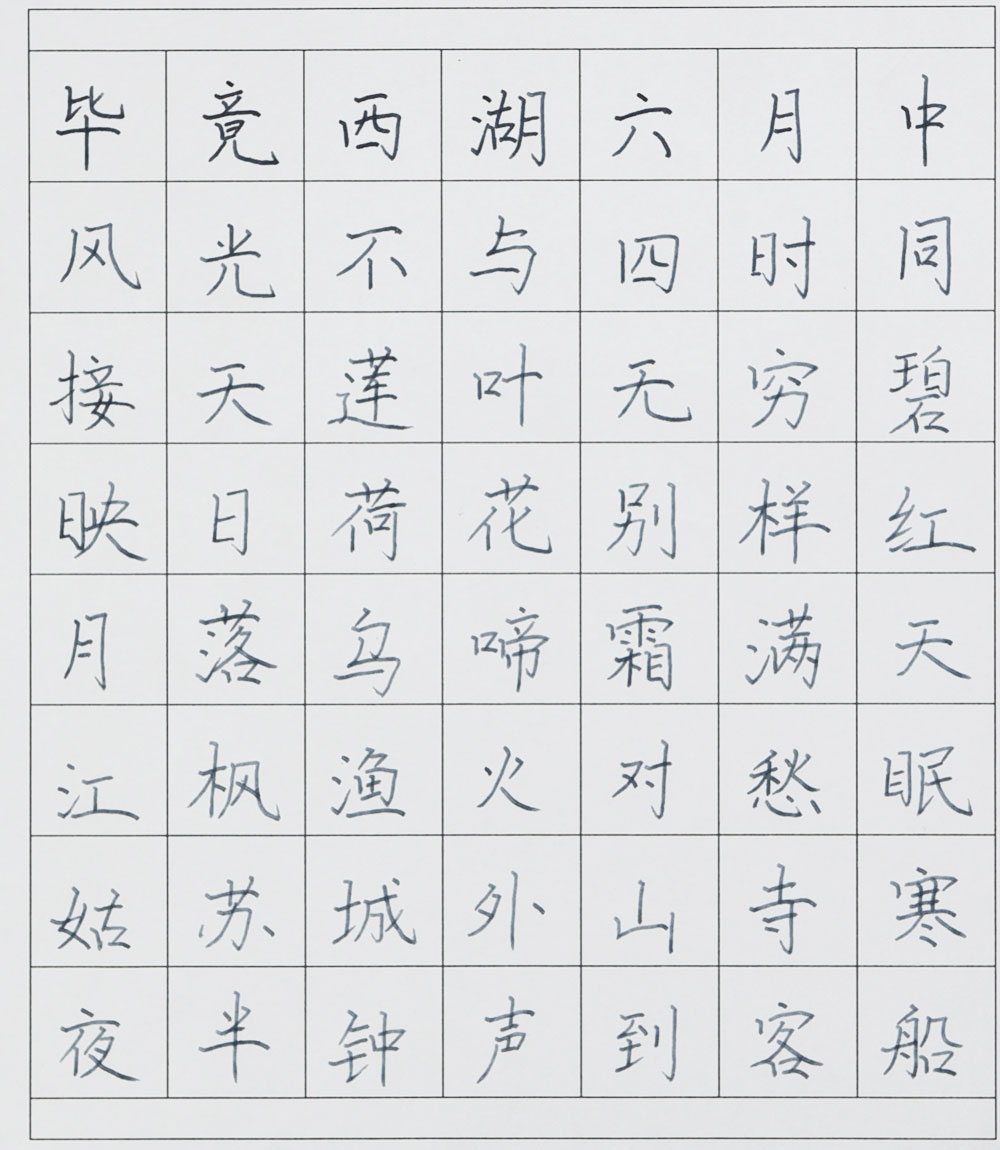 毕竟西湖六月中
风光不与四时同
接天莲叶无穷碧
映日荷花别样红
月落乌啼霜满天
江枫渔火对愁眠
姑苏城外山寺寒
夜半钟声到客船